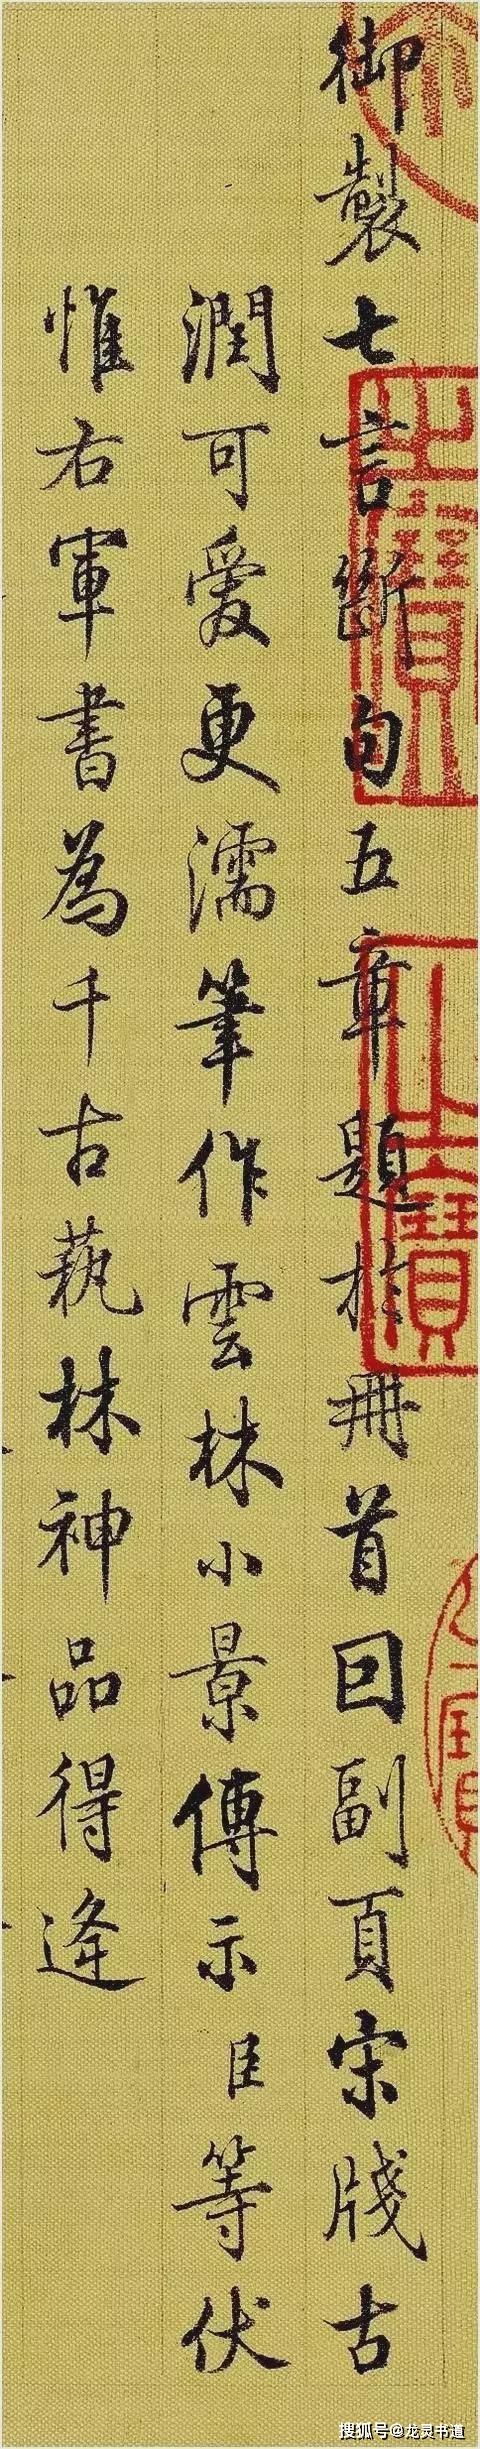 御製七言斷句五章題於冊首回副頁宋牋古
潤可愛更濡筆作雲林小景傳示臣等伏
惟右軍書為千古蓺林神品得逢
搜狐号@龙灵书道